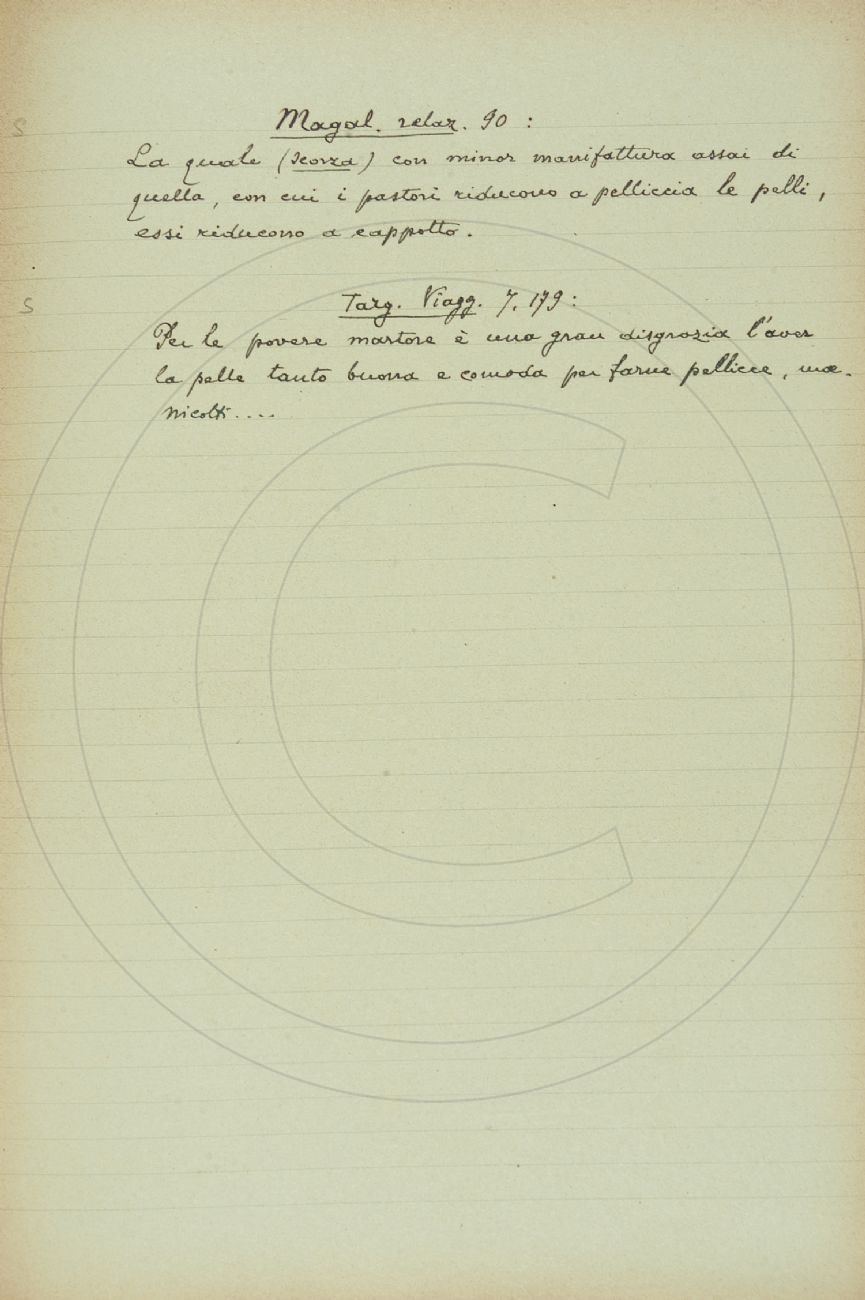 S
Magal. relaz. 90 :
La quale (scorza) con minor manifattura assai di
quella, con cui i pastori riducono a pelliccia le pelli,
essi riducono a cappotto.
S
Targ. Viagg. 7. 179 :
Per le povere martore è una gran disgrazia l'aver
la pelle tanto buona e comoda per farne pellicce, ma-
nicotti....